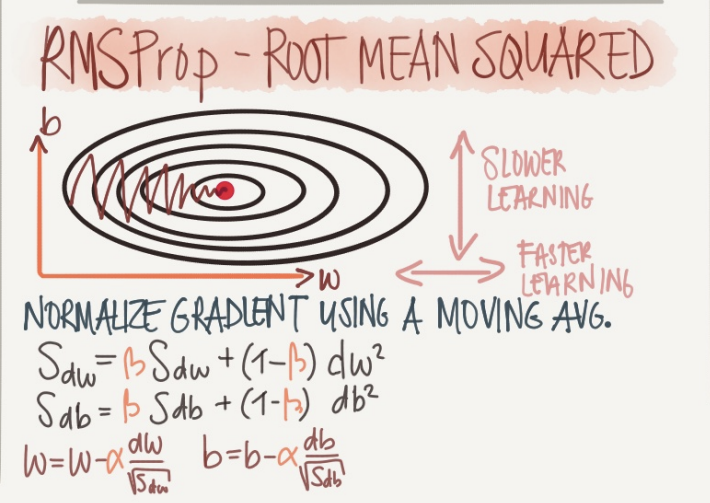 RMSProp - ROOT MEAN SQUARED
b
SLOWER
LEARNING
FASTER
LEARNING
w
NORMALIZE GRADIENT USING A MOVING AVG.
S_dw = β S_dw + (1-β) dw²
S_db = β S_db + (1-β) db²
w = w - α dw/√S_dw b = b - α db/√S_db